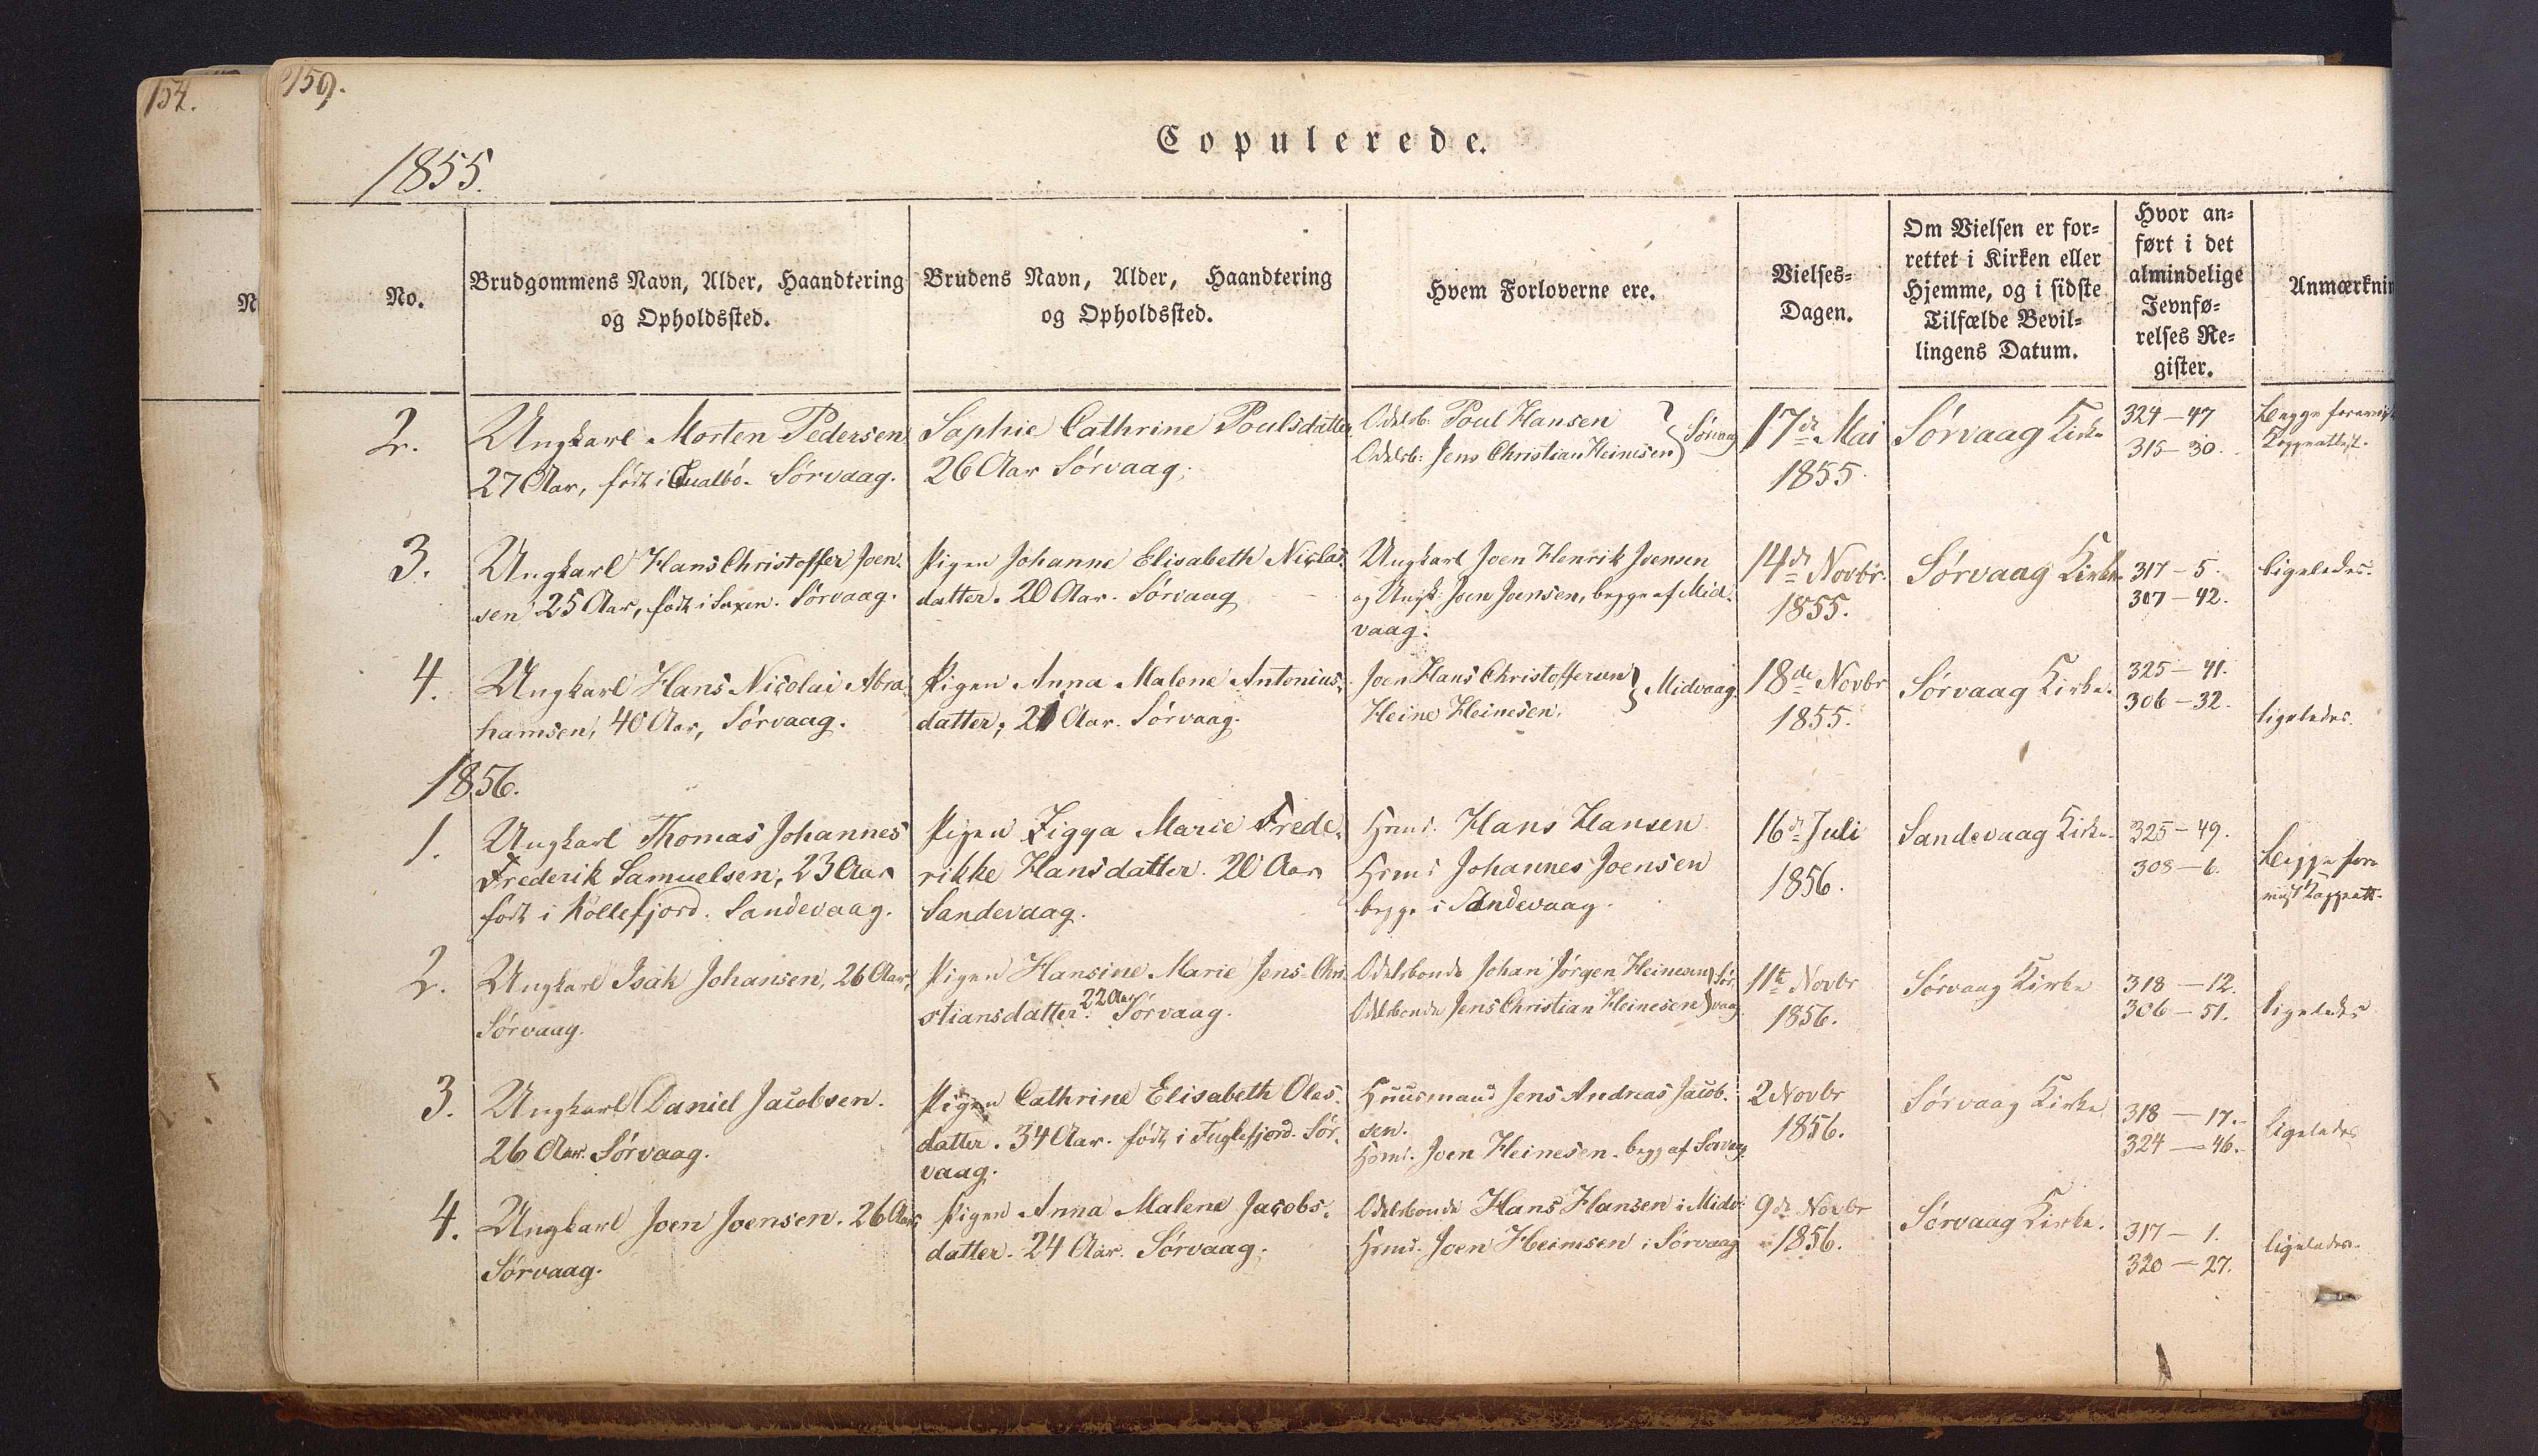 154.
159.
Copulerede.
1855.
N
No.
Brudgommens Navn, Alder, Haandtering
og Opholdssted.
Brudens Navn, Alder, Haandtering
og Opholdssted.
Hvem Forloverne ere.
Vielses-
Dagen.
Om Vielsen er for-
rettet i Kirken eller
Hjemme, og i sidste
Tilfælde Bevil-
lingens Datum.
Hvor an-
ført i det
almindelige
Jevnfø-
relses Re-
gister.
Anmærknin
2.
Ungkarl Morten Pedersen
27 Aar, født i Qualbö. Sörvaag.
Sophie Cathrine Poulsdatter
26 Aar Sörvaag.
Odelsb: Poul Hansen
Odelsb: Jens Christian Heinesen } Sörvaag
17de Mai
1855.
Sörvaag Kirke
324-47
315-30.
Begge
Koppeattest.
3.
Ungkarl Hans Christoffer Joen-
sen 25 Aar, født i Saxen. Sörvaag.
Pigen Johanne Elisabeth Niclas-
datter. 20 Aar. Sörvaag
Ungkarl Joen Henrik Joensen
og Ungk: Joen Joensen, begge af Mid-
vaag.
14de Novbr.
1855.
Sörvaag Kirke.
317-5.
307-42.
ligeledes.
4.
Ungkarl Hans Nicolai Abra-
hamsen, 40 Aar, Sörvaag.
Pigen Anna Malene Antonius-
datter, 21 Aar. Sörvaag.
Joen Hans Christoffersen
Heine Heinesen. } Midvaag.
18de Novbr
1855.
Sörvaag Kirke.
325-41.
306-32.
ligeledes.
1856.
1.
Ungkarl Thomas Johannes
Frederik Samuelsen, 23 Aar
født i Kollefjord. Sandevaag.
Pigen Zigga Marie Frede-
rikke Hansdatter. 20 Aar
Sandevaag.
Hsmd. Hans Hansen
Hsmd Johannes Joensen
begge i Sandevaag.
16de Juli
1856.
Sandevaag Kirke.
325-49.
308-6.
Begge fore
viist Koppeatt.
2.
Ungkarl Isak Johansen, 26 Aar,
Sörvaag.
Pigen Hansine Marie Jens-Chri-
stiansdatter. 22 Aar Sörvaag.
Odelsbonde Johan Jörgen Heinesen } Sör-
Odelsbonde Jens Christian Heinesen } vaag
11te Novbr
1856.
Sörvaag Kirke
318-12.
306-51.
ligeledes
3.
Ungkarl Daniel Jacobsen.
26 Aar. Sörvaag.
Pigen Cathrine Elisabeth Oles-
datter. 34 Aar. født i Fuglefjord. Sör-
vaag.
Huusmand Jens Andreas Jacob-
sen.
Hsmd. Joen Heinesen. begg af Sörvaag.
2 Novbr
1856.
Sörvaag Kirke
318-17.
324-46.
ligeledes
4.
Ungkarl Joen Joensen. 26 Aar,
Sörvaag.
Pigen Anna Malene Jacobs-
datter. 24 Aar. Sörvaag.
Odelsbonde Hans Hansen i Midv:
Hsmd. Joen Heinesen i Sörvaag
9de Novbr
1856.
Sörvaag Kirke.
317-1.
320-27.
ligeledes.